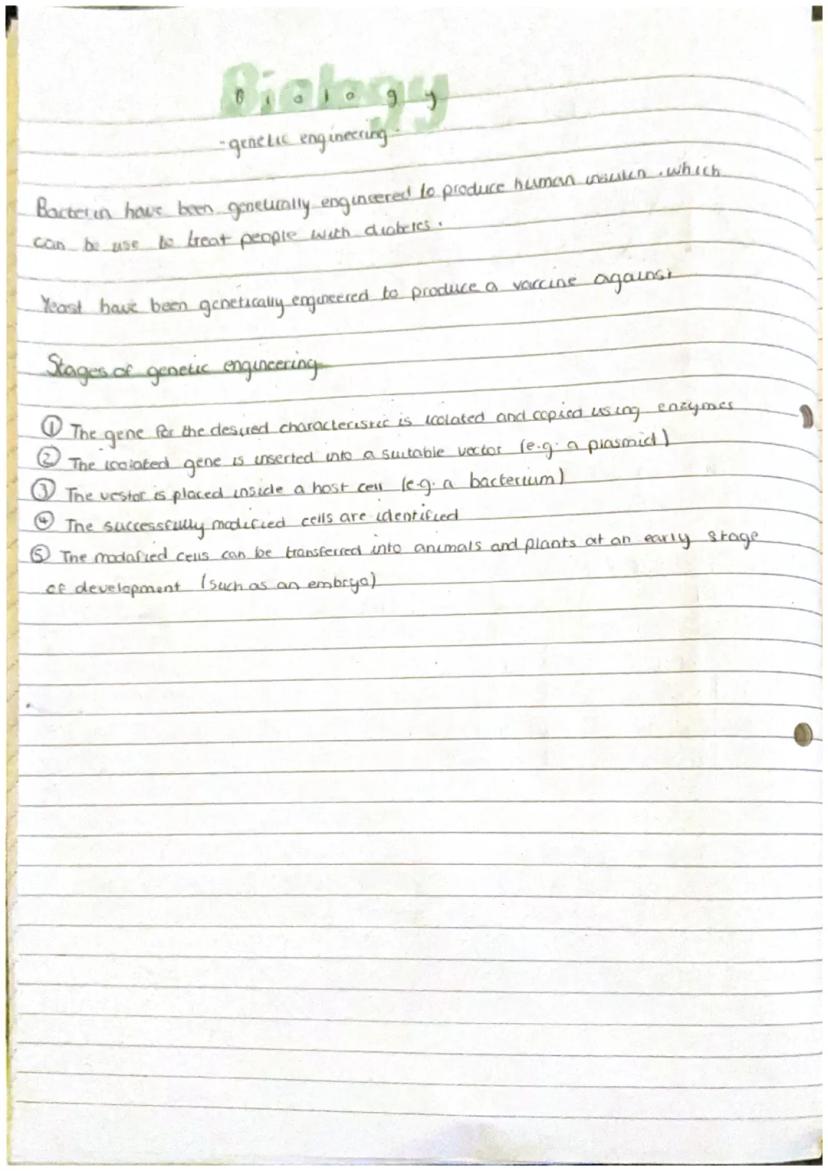 Biology
- genetic engineering -
Bacteria have been genetically engineered to produce human insulin. which
can be use to treat people with diabetes.
Yeast have been genetically engineered to produce a vaccine against
Stages of genetic engineering
① The gene for the desired characteristic is isolated and copied using enzymes
② The isolated gene is inserted into a suitable vector (e.g. a plasmid)
③ The vector is placed inside a host cell (e.g. a bacterium)
④ The successfully modified cells are identified
⑤ The modafied cells can be transferred into animals and plants at an early stage
of development (such as an embryo)